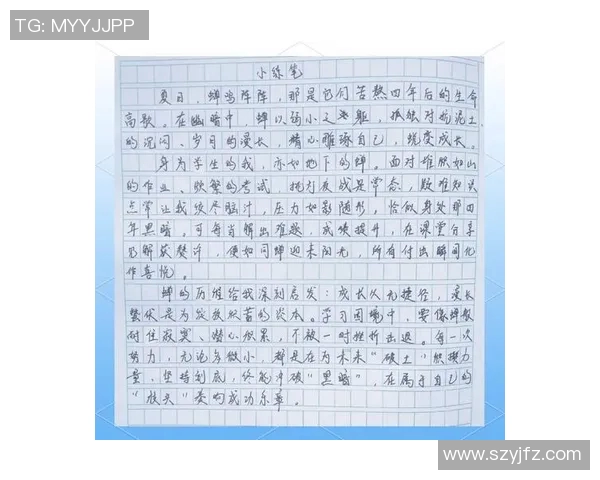 TG: MYYJJPP
小练笔
夏日，蝉鸣阵阵，那是它们苦熬四年后的生命
高歌。在幽暗中，蝉以弱小之躯，孤独对抗泥土
的沉闷、岁月的漫长，精心雕琢自己，蜕变成长。
身为学生的我，亦如地下的蝉。面对堆积如山
的作业、频繁的考试，挑灯夜战是常态，疑难知识
点常让我绞尽脑汁，压力如影随形，恰似身处那四
年黑暗。可每当解出难题，成绩提升，在课堂分享
见解获赞许，便如同蝉迎来阳光，所有付出瞬间化
作喜悦。
蝉的历程给我深刻启发：成长从无捷径，漫长
蛰伏是为突破积蓄的资本。学习困境中，要像蝉般
耐住寂寞、潜心积累，不被一时挫折击退。每一次
努力，无论多微小，都是在为未来“破土”积攒力
量，坚持到底，终能冲破“黑暗”，在属于自己的
“枝头”奏响成功乐章。
www.szyjfz.com